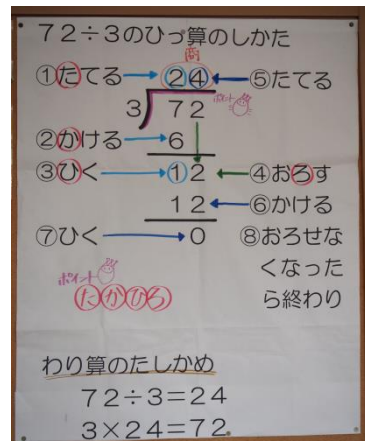 72÷3のひっ算のしかた
商
①たてる 24 ⑤たてる
3 72 ポイント
②かける 6
③ひく 12 ④おろす
12 ⑥かける
⑦ひく 0 ⑧おろせな
くなった
ら終わり
ポイント
たかひろ
わり算のたしかめ
72÷3=24
3×24=72